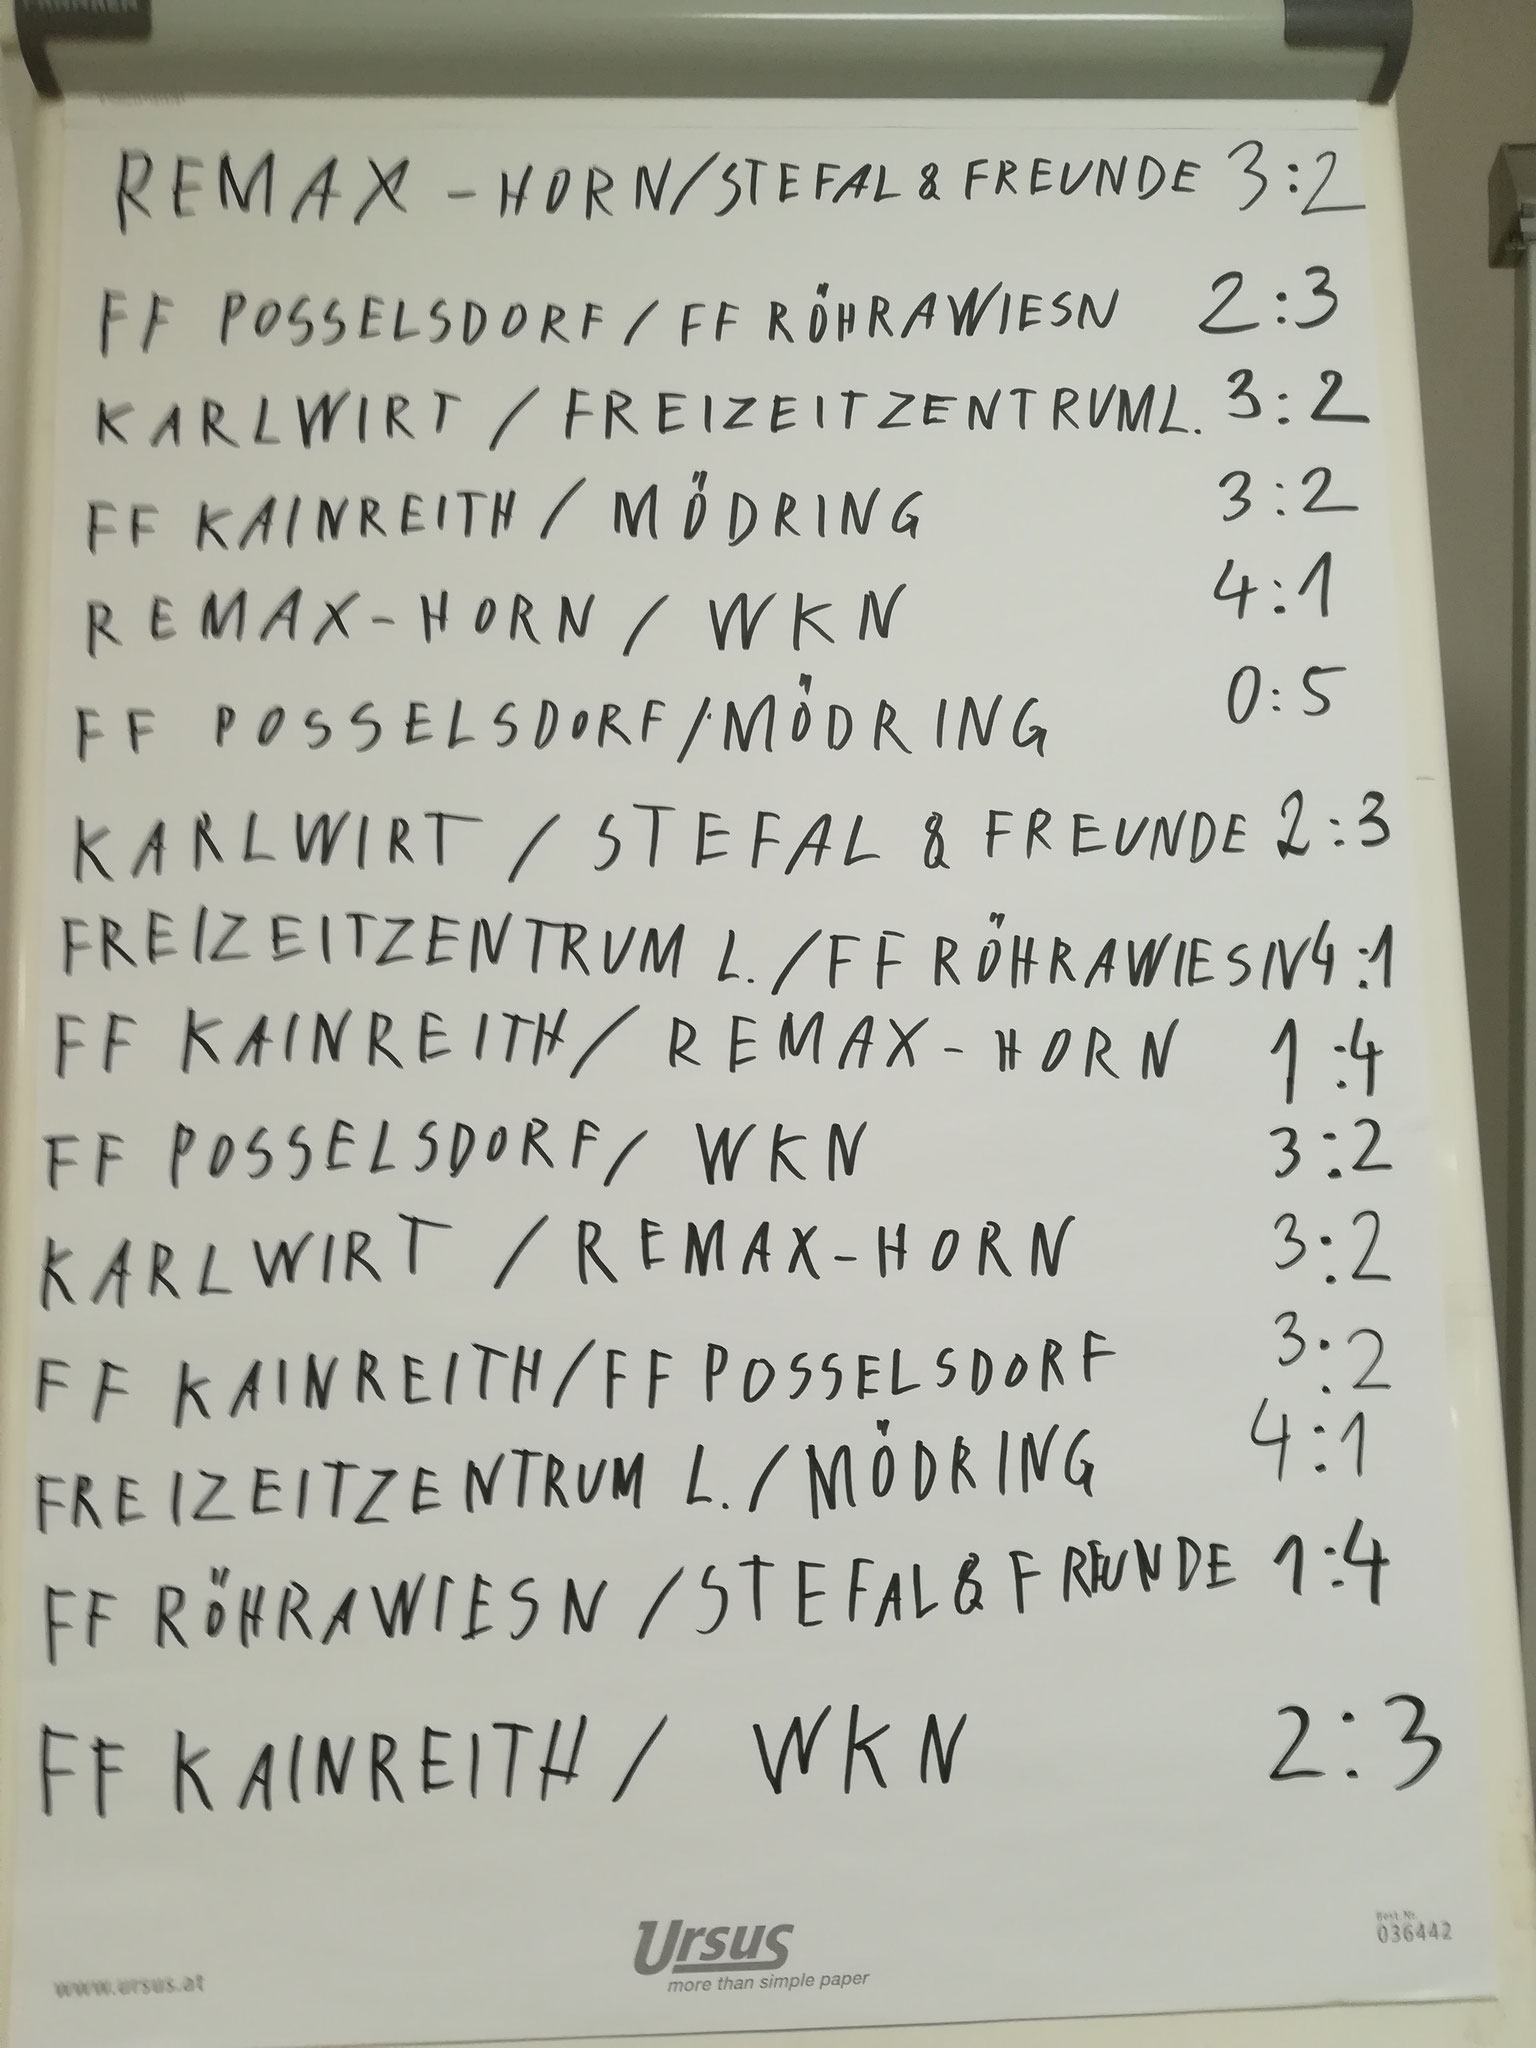 REMAX - HORN/STEFAL & FREUNDE 3:2
FF POSSELSDORF / FF RÖHRAWIESN 2:3
KARLWIRT / FREIZEITZENTRUML. 3:2
FF KAINREITH / MÖDRING 3:2
REMAX-HORN / WKN 4:1
FF POSSELSDORF/MÖDRING 0:5
KARLWIRT / STEFAL & FREUNDE 2:3
FREIZEITZENTRUM L./FF RÖHRAWIESN 4:1
FF KAINREITH/ REMAX-HORN 1:4
FF POSSELSDORF/ WKN 3:2
KARLWIRT / REMAX-HORN 3:2
FF KAINREITH/FF POSSELSDORF 3:2
FREIZEITZENTRUM L./MÖDRING 4:1
FF RÖHRAWIESN /STEFAL & FREUNDE 1:4
FF KAINREITH/ WKN 2:3
Ursus
more than simple paper
www.ursus.at
Best. Nr.
036442